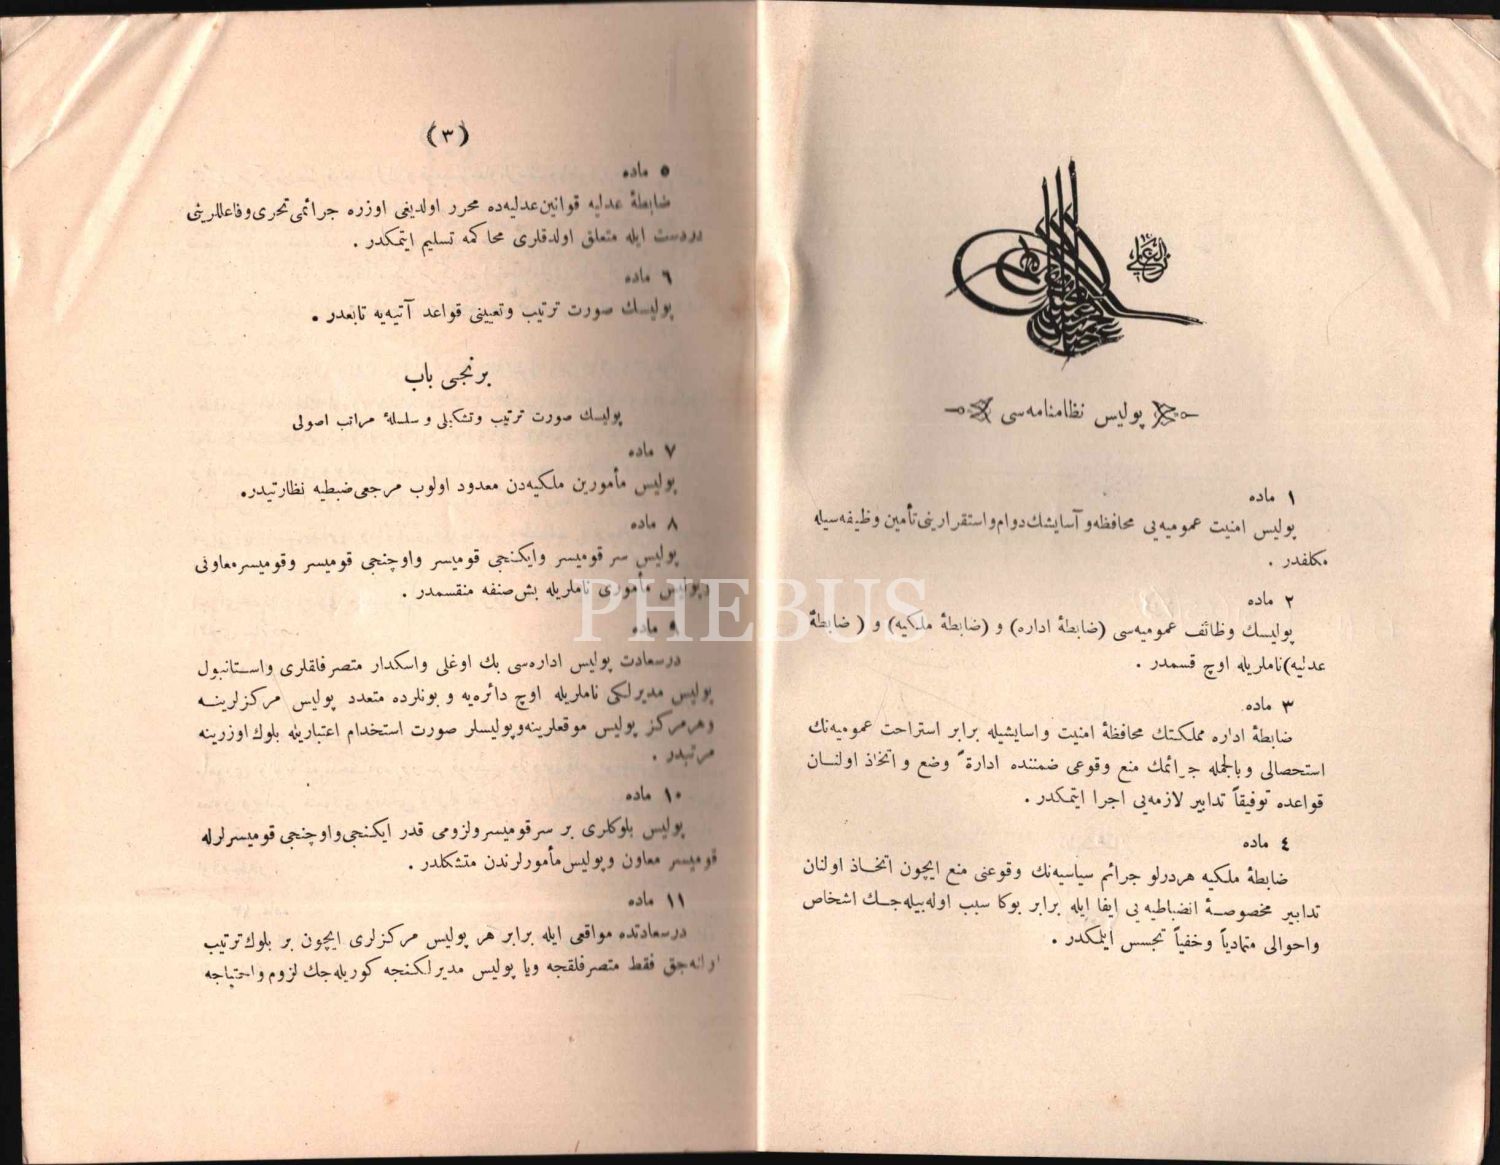 پوليس نظامنامه‌سى
١ ماده
پوليس امنيت عموميه‌يى محافظه و آسايشك دوام و استقرارينى تأمين وظيفه‌سيله
مكلفدر .
٢ ماده
پوليسك وظائف عموميه‌سى (ضابطهٔ اداره) و (ضابطهٔ ملكيه) و ( ضابطهٔ
عدليه) ناملريله اوچ قسمدر .
٣ ماده
ضابطهٔ اداره مملكتك محافظهٔ امنيت و اسايشيله برابر استراحت عموميه‌نك
استحصالى و بالجمله جرائمك منع وقوعى ضمننده ادارةً وضع و اتخاذ اولنان
قواعده توفيقاً تدابير لازمه‌يى اجرا ايتمكدر .
٤ ماده
ضابطهٔ ملكيه هردرلو جرائم سياسيه‌نك وقوعنى منع ايچون اتخاذ اولنان
تدابير مخصوصهٔ انضباطيه‌يى ايفا ايله برابر بوكا سبب اوله‌بيله‌جك اشخاص
و احوالى متمادياً و خفياً تجسس ايلمكدر .
(٣)
٥ ماده
ضابطهٔ عدليه قوانين عدليه‌ده محرر اولديغى اوزره جرائمى تحرى و فاعللرينى
دردست ايله متعلق اولدقلرى محاكمه تسليم ايتمكدر .
٦ ماده
پوليسك صورت ترتيب و تعيينى قواعد آتيه‌يه تابعدر .
برنجى باب
پوليسك صورت ترتيب و تشكيلى و سلسلهٔ مراتب اصولى
٧ ماده
پوليس مأمورين ملكيه‌دن معدود اولوب مرجعى ضبطيه نظارتيدر .
٨ ماده
پوليس سر قوميسر و ايكنجى قوميسر و اوچنجى قوميسر و قوميسر معاونى
و پوليس مأمورى ناملريله بش صنفه منقسمدر .
٩ ماده
درسعادت پوليس اداره‌سى بك اوغلى و اسكدار متصرفلقلرى و استانبول
پوليس مديرلكى ناملريله اوچ دائره‌يه و بونلرده متعدد پوليس مركزلرينه
و هر مركز پوليس موقعلرينه و پوليسلر صورت استخدام اعتباريله بلوك اوزرينه
مرتبدر .
١٠ ماده
پوليس بلوكلرى بر سر قوميسر و لزومى قدر ايكنجى و اوچنجى قوميسرلرله
قوميسر معاون و پوليس مأمورلرندن متشكلدر .
١١ ماده
درسعادتده مواقعى ايله برابر هر پوليس مركزلرى ايچون بر بلوك ترتيب
اولنه‌جق فقط متصرفلقجه ويا پوليس مديرلكنجه كوريله‌جك لزوم و احتياجه
PHEBUS